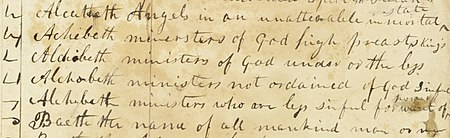 state
Alcabeth Angels in an unalterable immortal
Achebeth ministers of God high preasts kings
Alchibeth ministers of God under or the less
Alchobeth ministers not ordained of God sinful
power
Alchubeth ministers who are less sinful for want of
Baeth the name of all mankind man or